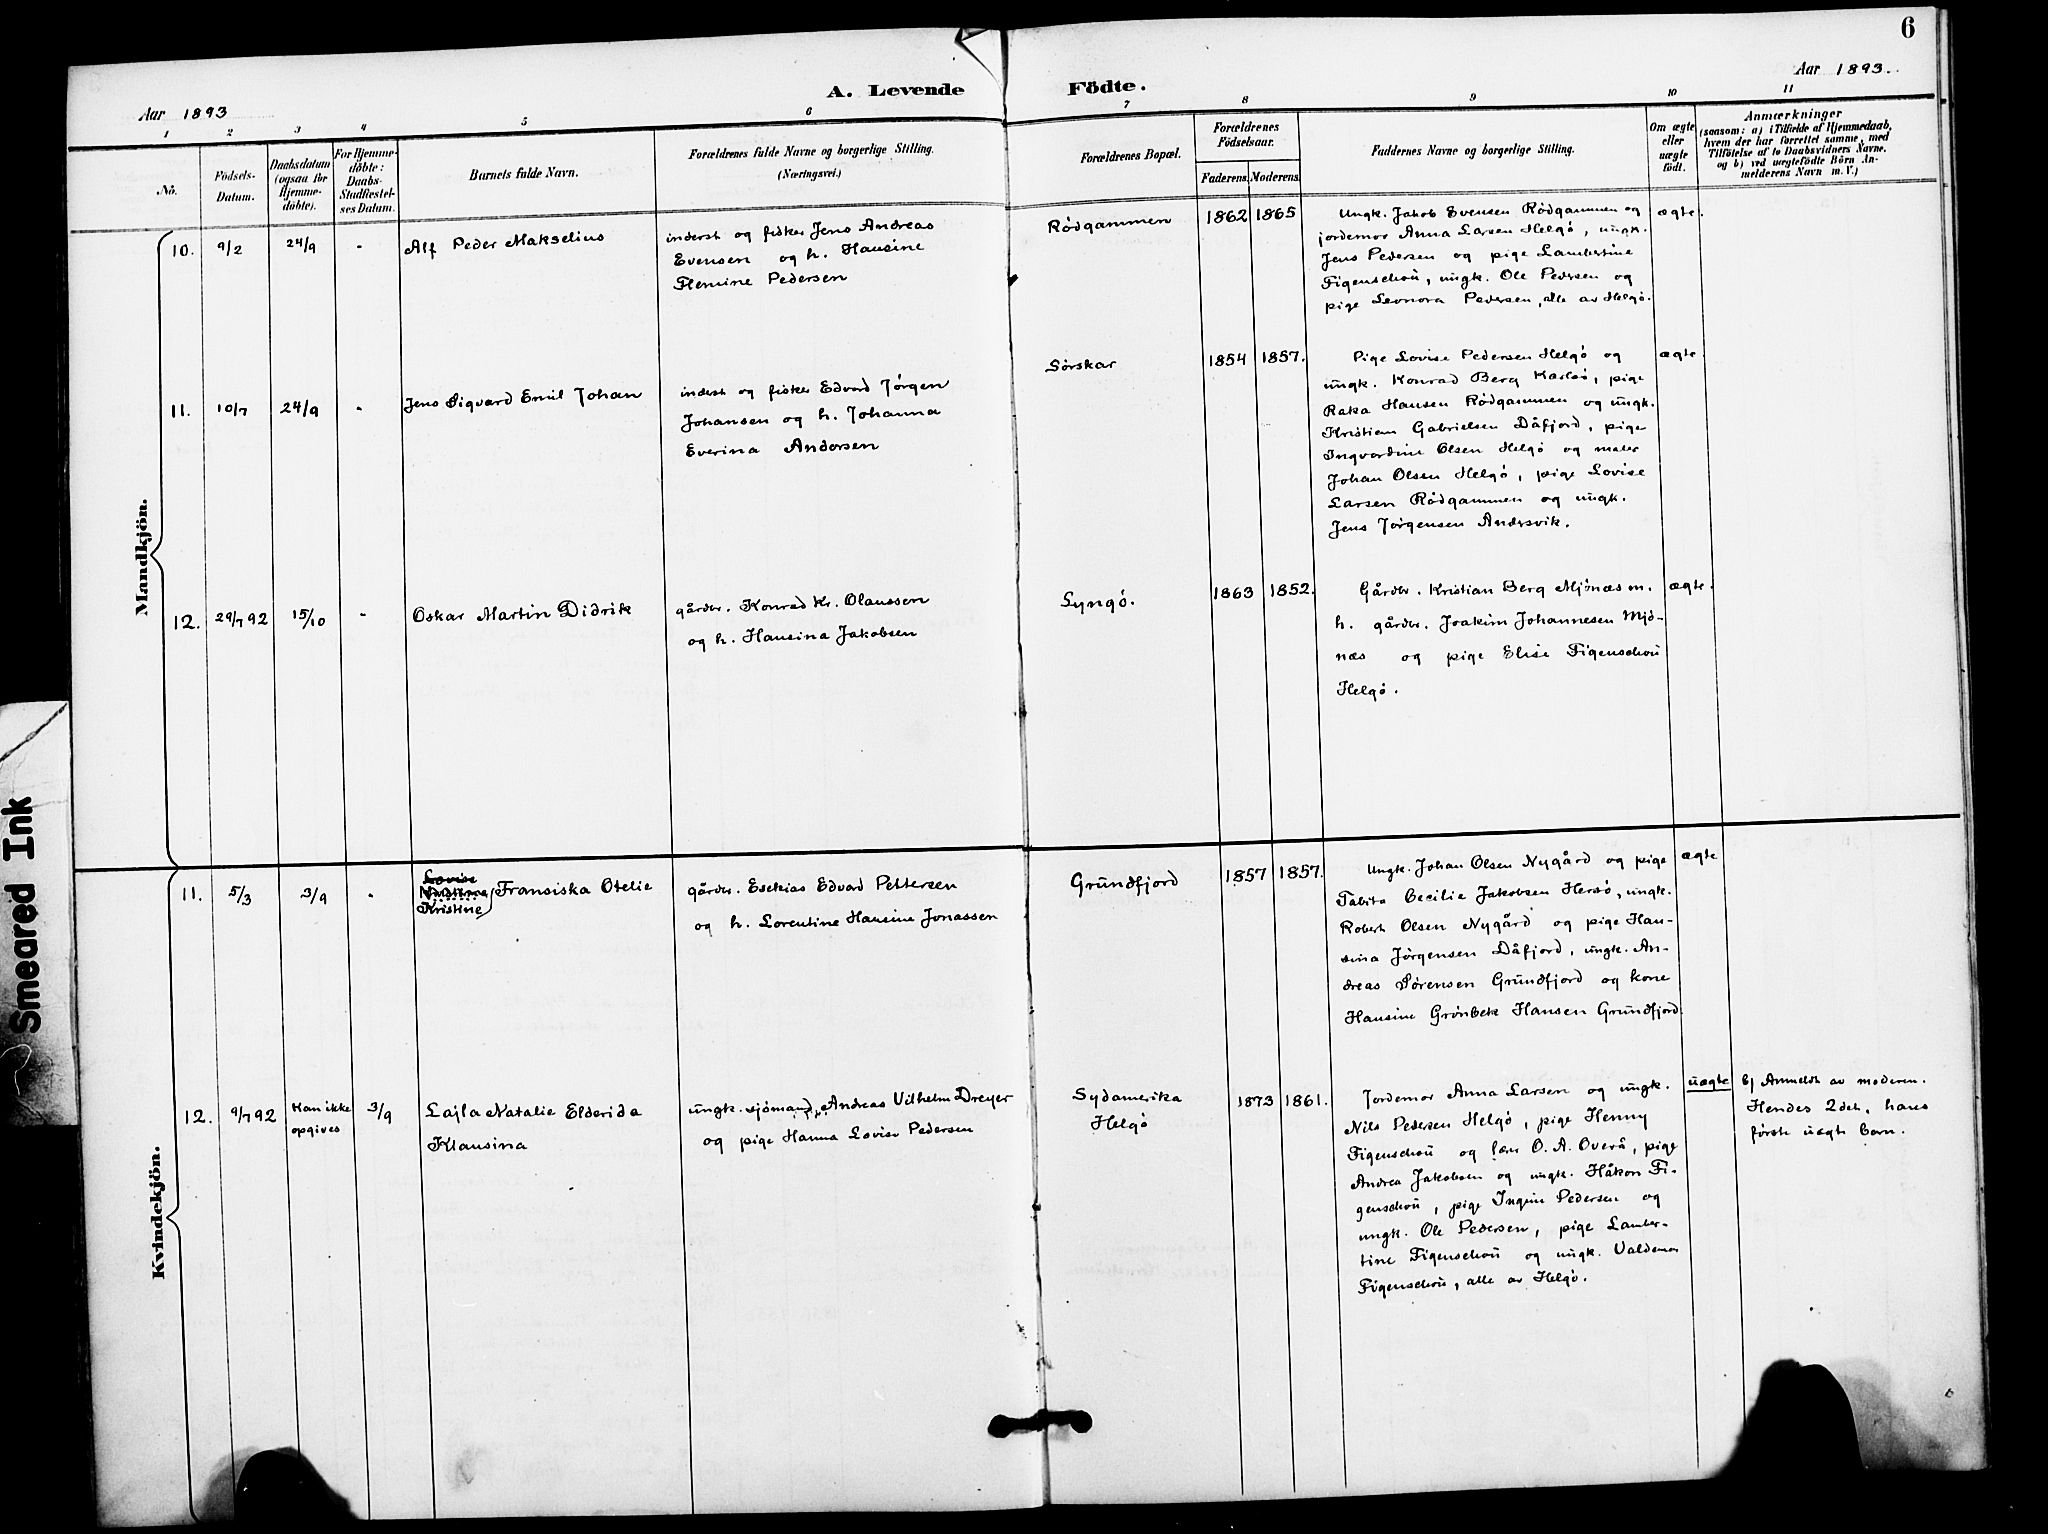 6
A. Levende Födte.
Aar 1893
Aar 1893.
1 2 3 4 5 6 7 8 9 10 11
Nö.
Födsels-
Datum.
Daabsdatum
(ogsaa for
Hjemme-
döbte).
For Hjemme-
döbte:
Daabs-
Stadfæstel-
ses Datum.
Barnets fulde Navn.
Forældrenes fulde Navne og borgerlige Stilling.
(Næringsvei.)
Forældrenes Bopæl.
Forældrenes
Fødselsaar.
Faderens. Moderens.
Faddernes Navne og borgerlige Stilling.
Om ægte
eller
uægte
födt.
Anmærkninger
(saasom: a) i Tilfælde af Hjemmedaab,
hvem der har forrettet samme, med
Tilföielse af to Daabsvidners Navne.
og b) ved uægtefödte Börn An-
melderens Navn m. V.)
Mandkjön.
10. 9/2 24/9 - Alf Peder Makselius
inderst og fisker Jens Andreas
Evensen og h. Hansine
Flemine Pedersen
Rödgammen 1862 1865
Ungk. Jakob Evensen Rödgammen og
jordemor Anna Larsen Helgö, ungk.
Jens Pedersen og pige Lambertine
Figenschou, ungk. Ole Pedersen og
pige Leonora Pedersen, alle av Helgö.
ægte.
11. 10/7 24/9 - Jens Sigvard Emil Johan
inderst og fisker Edvard Jörgen
Johansen og h. Johanna
Everina Andersen
Sörskar 1854 1857.
Pige Lovise Pedersen Helgö og
ungk. Konrad Berg Karlsö, pige
Raka Hansen Rödgammen og ungk.
Kristian Gabrielsen Dåfjord, pige
Ingvardine Olsen Helgö og maler
Johan Olsen Helgö, pige Lovise
Larsen Rödgammen og ungk.
Jens Jörgensen Andersvik.
ægte
12. 29/7 92 15/10 - Oskar Martin Didrik
gårdbr. Konrad Kr. Olaussen
og h. Hansina Jakobsen
Lyngö. 1863 1852.
Gårdbr. Kristian Berg Mjönæs m.
h. gårdbr. Joakim Johannesen Mjö-
næs og pige Elise Figenschou
Helgö.
ægte.
Kvindekjön.
11. 5/3 3/9 -
Lovise
Kristine Fransiska Otelie
gårdbr. Esekias Edvard Pettersen
og h. Lorentine Hansine Jonassen
Grundfjord 1857 1857.
Ungk. Johan Olsen Nygård og pige
Tabita Cecilie Jakobsen Hersö, ungk.
Robert Olsen Nygård og pige Han-
sina Jörgensen Dåfjord, ungk. An-
dreas Sörensen Grundfjord og kone
Hansine Grönbek Hansen Grundfjord
ægte
12. 9/7 92 Kan ikke
opgives
3/9
Lajla Natalie Elderida
Klausina
ungk. sjömand, Andreas Vilhelm Dreyer
og pige Hanna Lovise Pedersen
Sydamerika
Helgö
1873 1861.
Jordemor Anna Larsen og ungk.
Nils Pedersen Helgö, pige Henny
Figenschou og lærer O. A. Overå, pige
Andrea Jakobsen og ungk. Håkon Fi-
genschou, pige Ingine Pedersen og
ungk. Ole Pedersen, pige Lamber-
tine Figenschou og ungk. Valdemar
Figenschou, alle av Helgö.
uægte
b) Anmeldt av moderen.
Hendes 2det, hans
förste uægte barn.
Smeared Ink